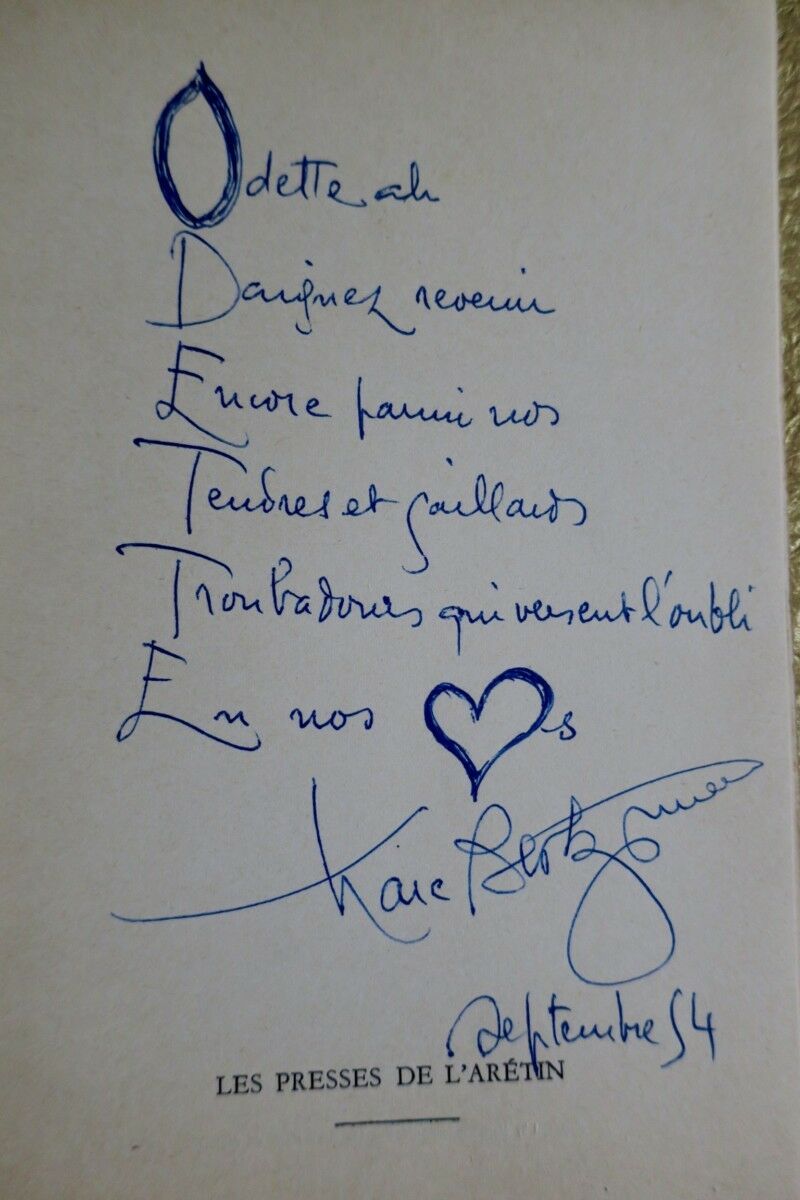 Odette ah
Daignez revenir
Encore parmi nos
Tendres et gaillards
Troubadours qui versent l'oubli
En nos ♥s
Marc
septembre 54
LES PRESSES DE L'ARÉTIN